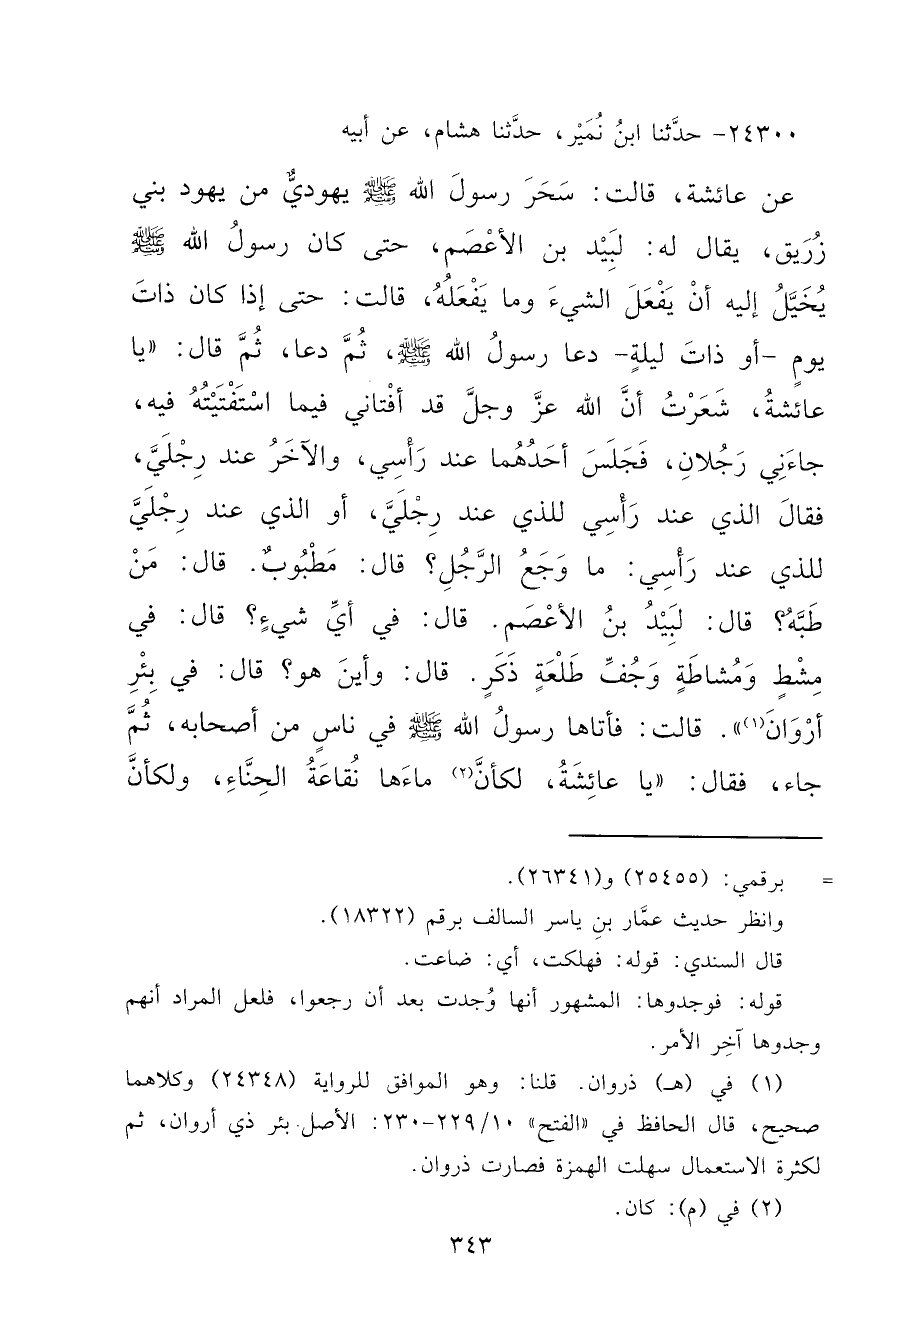 ٢٤٣٠٠- حدَّثنا ابنُ نُمَيْر، حدَّثنا هشام، عن أبيه
عن عائشة، قالت: سَحَرَ رسولَ الله ﷺ يهوديٌّ من يهود بني
زُرَيق، يقال له: لَبِيْد بن الأعْصَم، حتى كان رسولُ الله ﷺ
يُخَيَّلُ إليه أنْ يَفْعَلَ الشيءَ وما يَفْعَلُهُ، قالت: حتى إذا كان ذاتَ
يومٍ -أو ذاتَ ليلةٍ- دعا رسولُ الله ﷺ، ثُمَّ دعا، ثُمَّ قال: «يا
عائشةُ، شَعَرْتُ أنَّ الله عزَّ وجلَّ قد أفْتاني فيما اسْتَفْتَيْتُهُ فيه،
جاءَنِي رَجُلانِ، فَجَلَسَ أحَدُهُما عند رَأْسِي، والآخَرُ عند رِجْلَيَّ،
فقالَ الذي عند رَأْسِي للذي عند رِجْلَيَّ، أو الذي عند رِجْلَيَّ
للذي عند رَأْسِي: ما وَجَعُ الرَّجُلِ؟ قال: مَطْبُوبٌ. قال: مَنْ
طَبَّهُ؟ قال: لَبِيْدُ بنُ الأعْصَم. قال: في أيِّ شيءٍ؟ قال: في
مِشْطٍ وَمُشاطَةٍ وَجُفِّ طَلْعَةِ ذَكَرٍ. قال: وأينَ هو؟ قال: في بِئْرِ
أرْوَانَ(١)». قالت: فأتاها رسولُ الله ﷺ في ناسٍ من أصحابه، ثُمَّ
جاء، فقال: «يا عائِشَةُ، لكأنَّ(٢) ماءَها نُقاعَةُ الحِنَّاءِ، ولكأنَّ
= برقمي: (٢٥٤٥٥) و(٢٦٣٤١).
وانظر حديث عمَّار بنِ ياسر السالف برقم (١٨٣٢٢).
قال السندي: قوله: فهلكت، أي: ضاعت.
قوله: فوجدوها: المشهور أنها وُجدت بعد أن رجعوا، فلعل المراد أنهم
وجدوها آخِر الأمر.
(١) في (هـ) ذروان. قلنا: وهو الموافق للرواية (٢٤٣٤٨) وكلاهما
صحيح، قال الحافظ في «الفتح» ١٠/٢٢٩-٢٣٠: الأصل بئر ذي أروان، ثم
لكثرة الاستعمال سهلت الهمزة فصارت ذروان.
(٢) في (م): كان.
٣٤٣